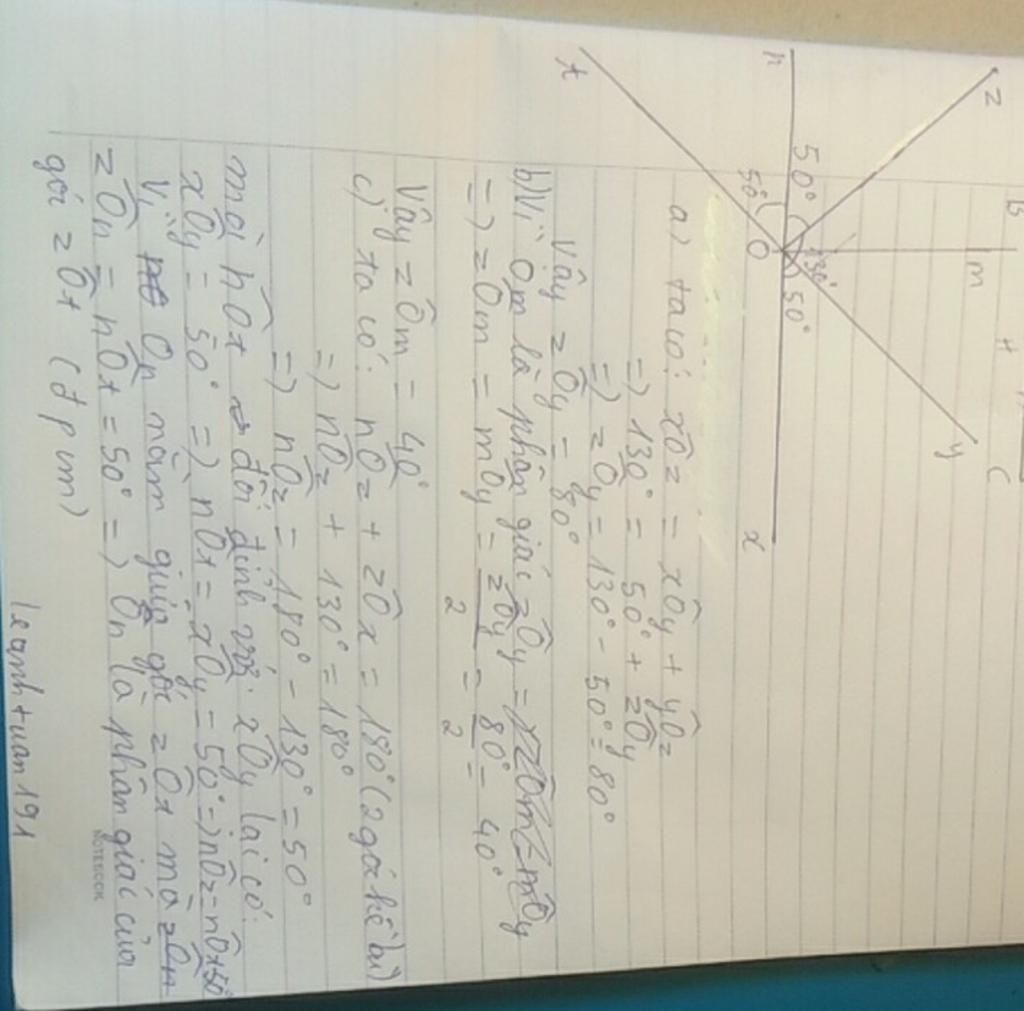 B
H
C
z
m
y
n
50°
130°
50°
50°
O
x
t
a) ta có: xÔz = xÔy + yÔz
=) 130° = 50° + zÔy
=) zÔy = 130° - 50° = 80°
Vậy zÔy = 80°
b) Vì Om là phân giác zÔy = zÔm = mÔy
=) zÔm = mÔy = zÔy/2 = 80°/2 = 40°
Vậy zÔm = 40°
c) ta có: nÔz + zÔx = 180° (2 góc kề bù)
=) nÔz + 130° = 180°
=) nÔz = 180° - 130° = 50°
mà nÔt đối đỉnh với xÔy lại có:
xÔy = 50° =) nÔt = xÔy = 50° =) nÔz = nÔt = 50°
Vì On nằm giữa góc zÔt mà zÔn
zÔn = nÔt = 50° =) On là phân giác của
góc zÔt (đpcm)
leanhtuan191
NOTEBOOK